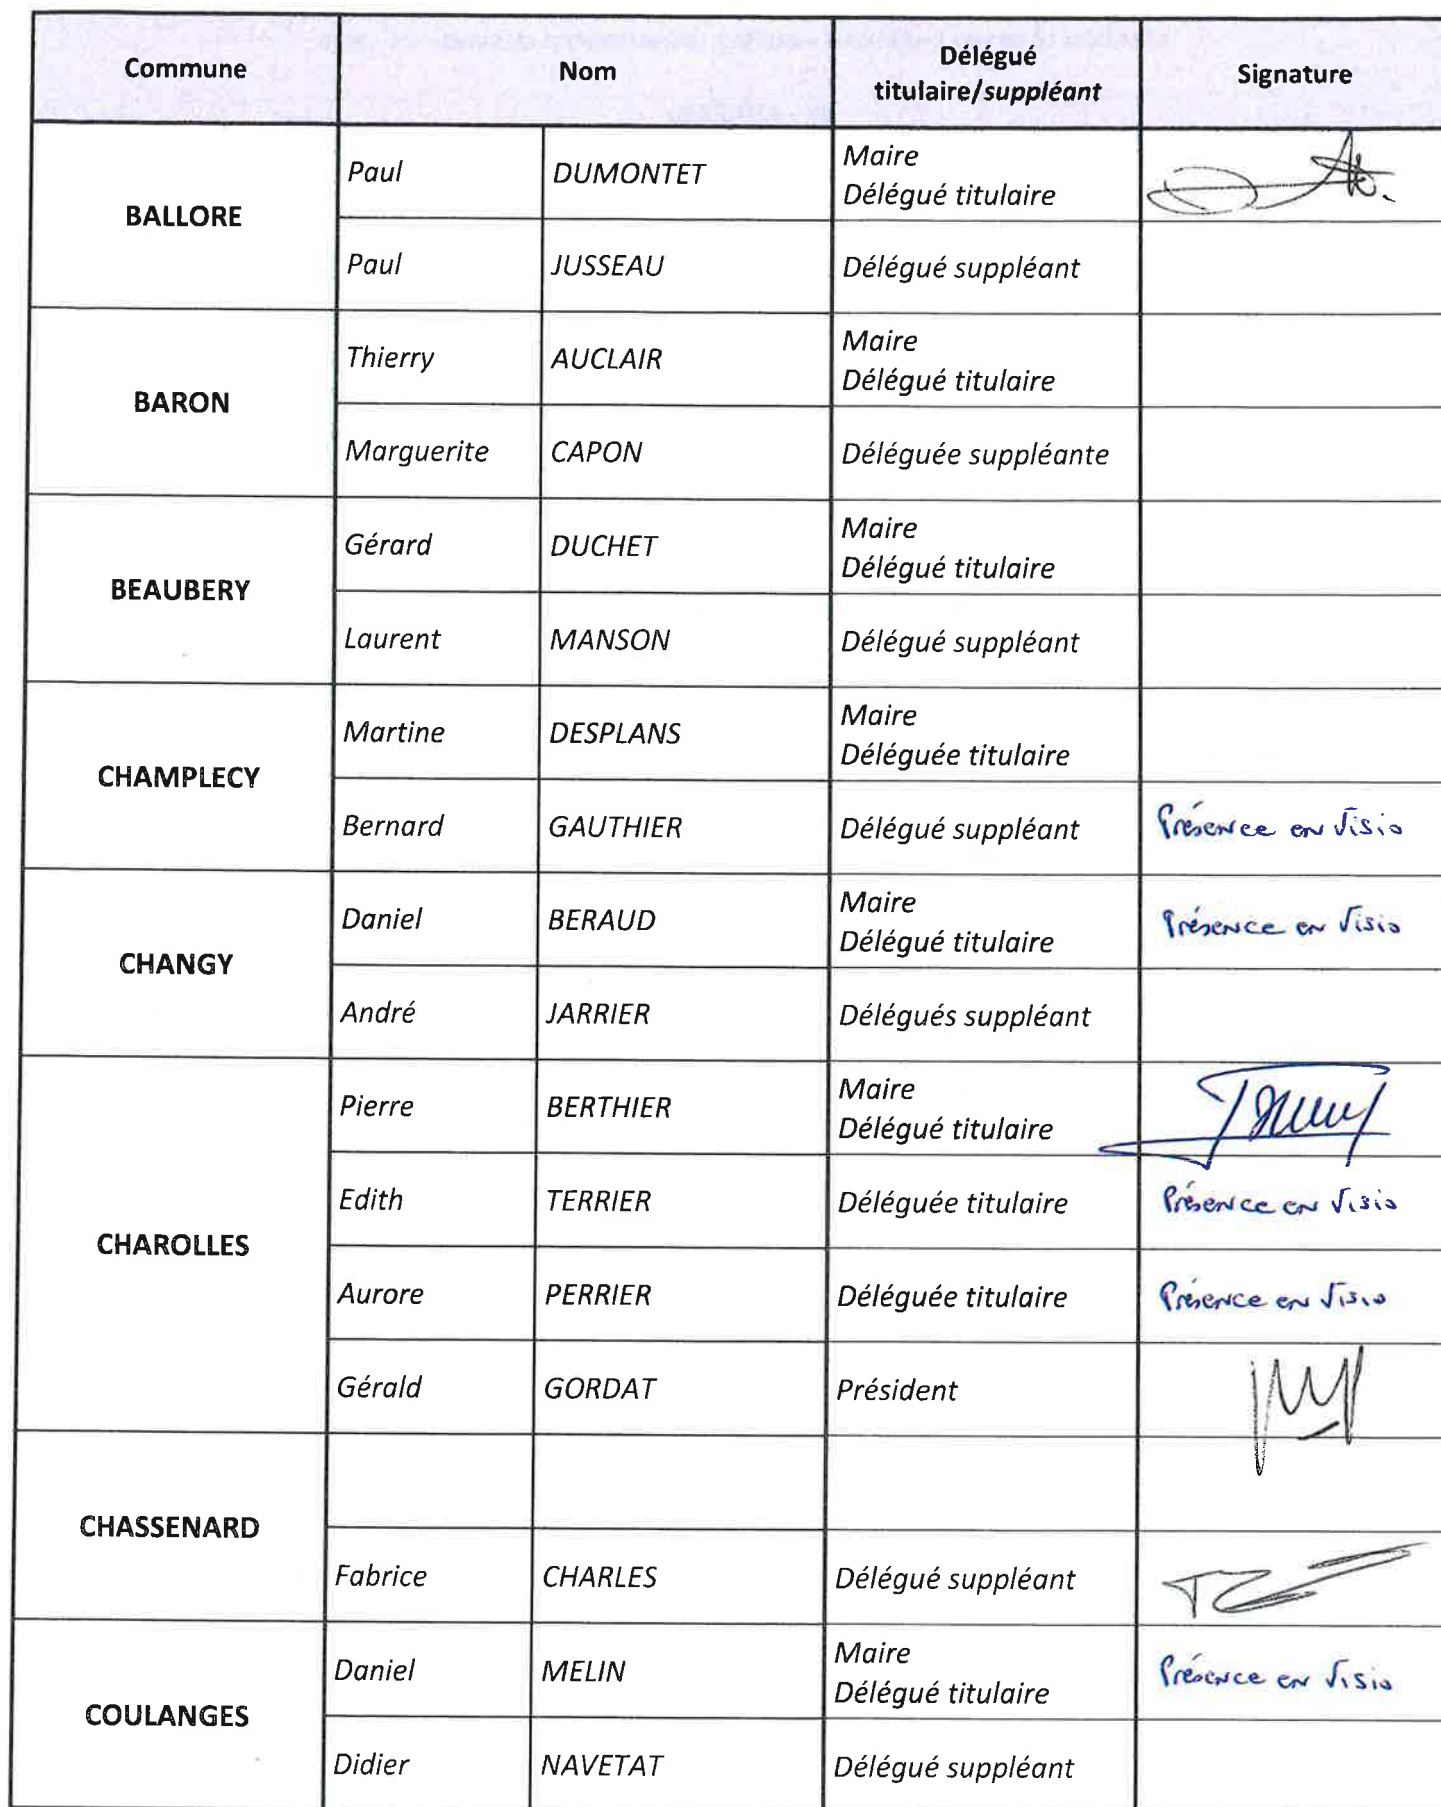 Commune Nom Délégué titulaire/suppléant Signature
BALLORE
Paul DUMONTET Maire
Délégué titulaire
Paul JUSSEAU Délégué suppléant
BARON
Thierry AUCLAIR Maire
Délégué titulaire
Marguerite CAPON Déléguée suppléante
BEAUBERY
Gérard DUCHET Maire
Délégué titulaire
Laurent MANSON Délégué suppléant
CHAMPLECY
Martine DESPLANS Maire
Déléguée titulaire
Bernard GAUTHIER Délégué suppléant Présence en Visio
CHANGY
Daniel BERAUD Maire
Délégué titulaire Présence en Visio
André JARRIER Délégués suppléant
CHAROLLES
Pierre BERTHIER Maire
Délégué titulaire
Edith TERRIER Déléguée titulaire Présence en Visio
Aurore PERRIER Déléguée titulaire Présence en Visio
Gérald GORDAT Président
CHASSENARD
Fabrice CHARLES Délégué suppléant
COULANGES
Daniel MELIN Maire
Délégué titulaire Présence en Visio
Didier NAVETAT Délégué suppléant